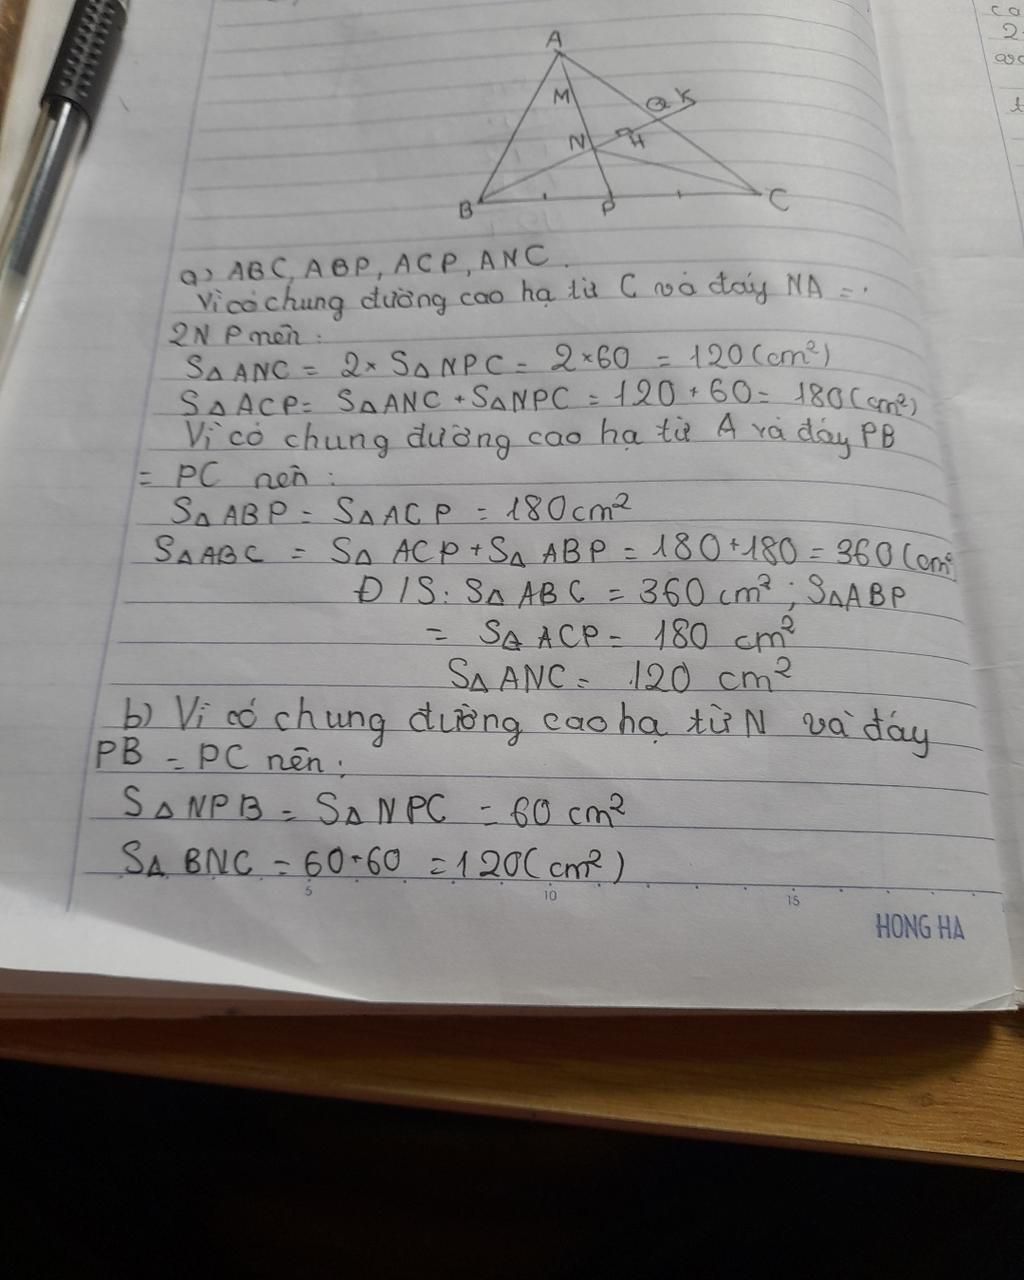 A
M
Q K
N
H
B
P
C
a) ABC, ABP, ACP, ANC.
Vì có chung đường cao hạ từ C và đáy NA =
2NP nên:
S△ANC = 2 × S△NPC = 2×60 = 120(cm²)
S△ACP = S△ANC + S△NPC = 120 + 60 = 180(cm²)
Vì có chung đường cao hạ từ A và đáy PB
= PC nên:
S△ABP = S△ACP = 180cm²
S△ABC = S△ACP + S△ABP = 180+180 = 360(cm²
Đ/S: S△ABC = 360 cm²; S△ABP
= S△ACP = 180 cm²
S△ANC = 120 cm²
b) Vì có chung đường cao hạ từ N và đáy
PB = PC nên:
S△NPB = S△NPC = 60 cm²
S△BNC = 60+60 = 120(cm²)
5 10 15
HONG HA
2
t